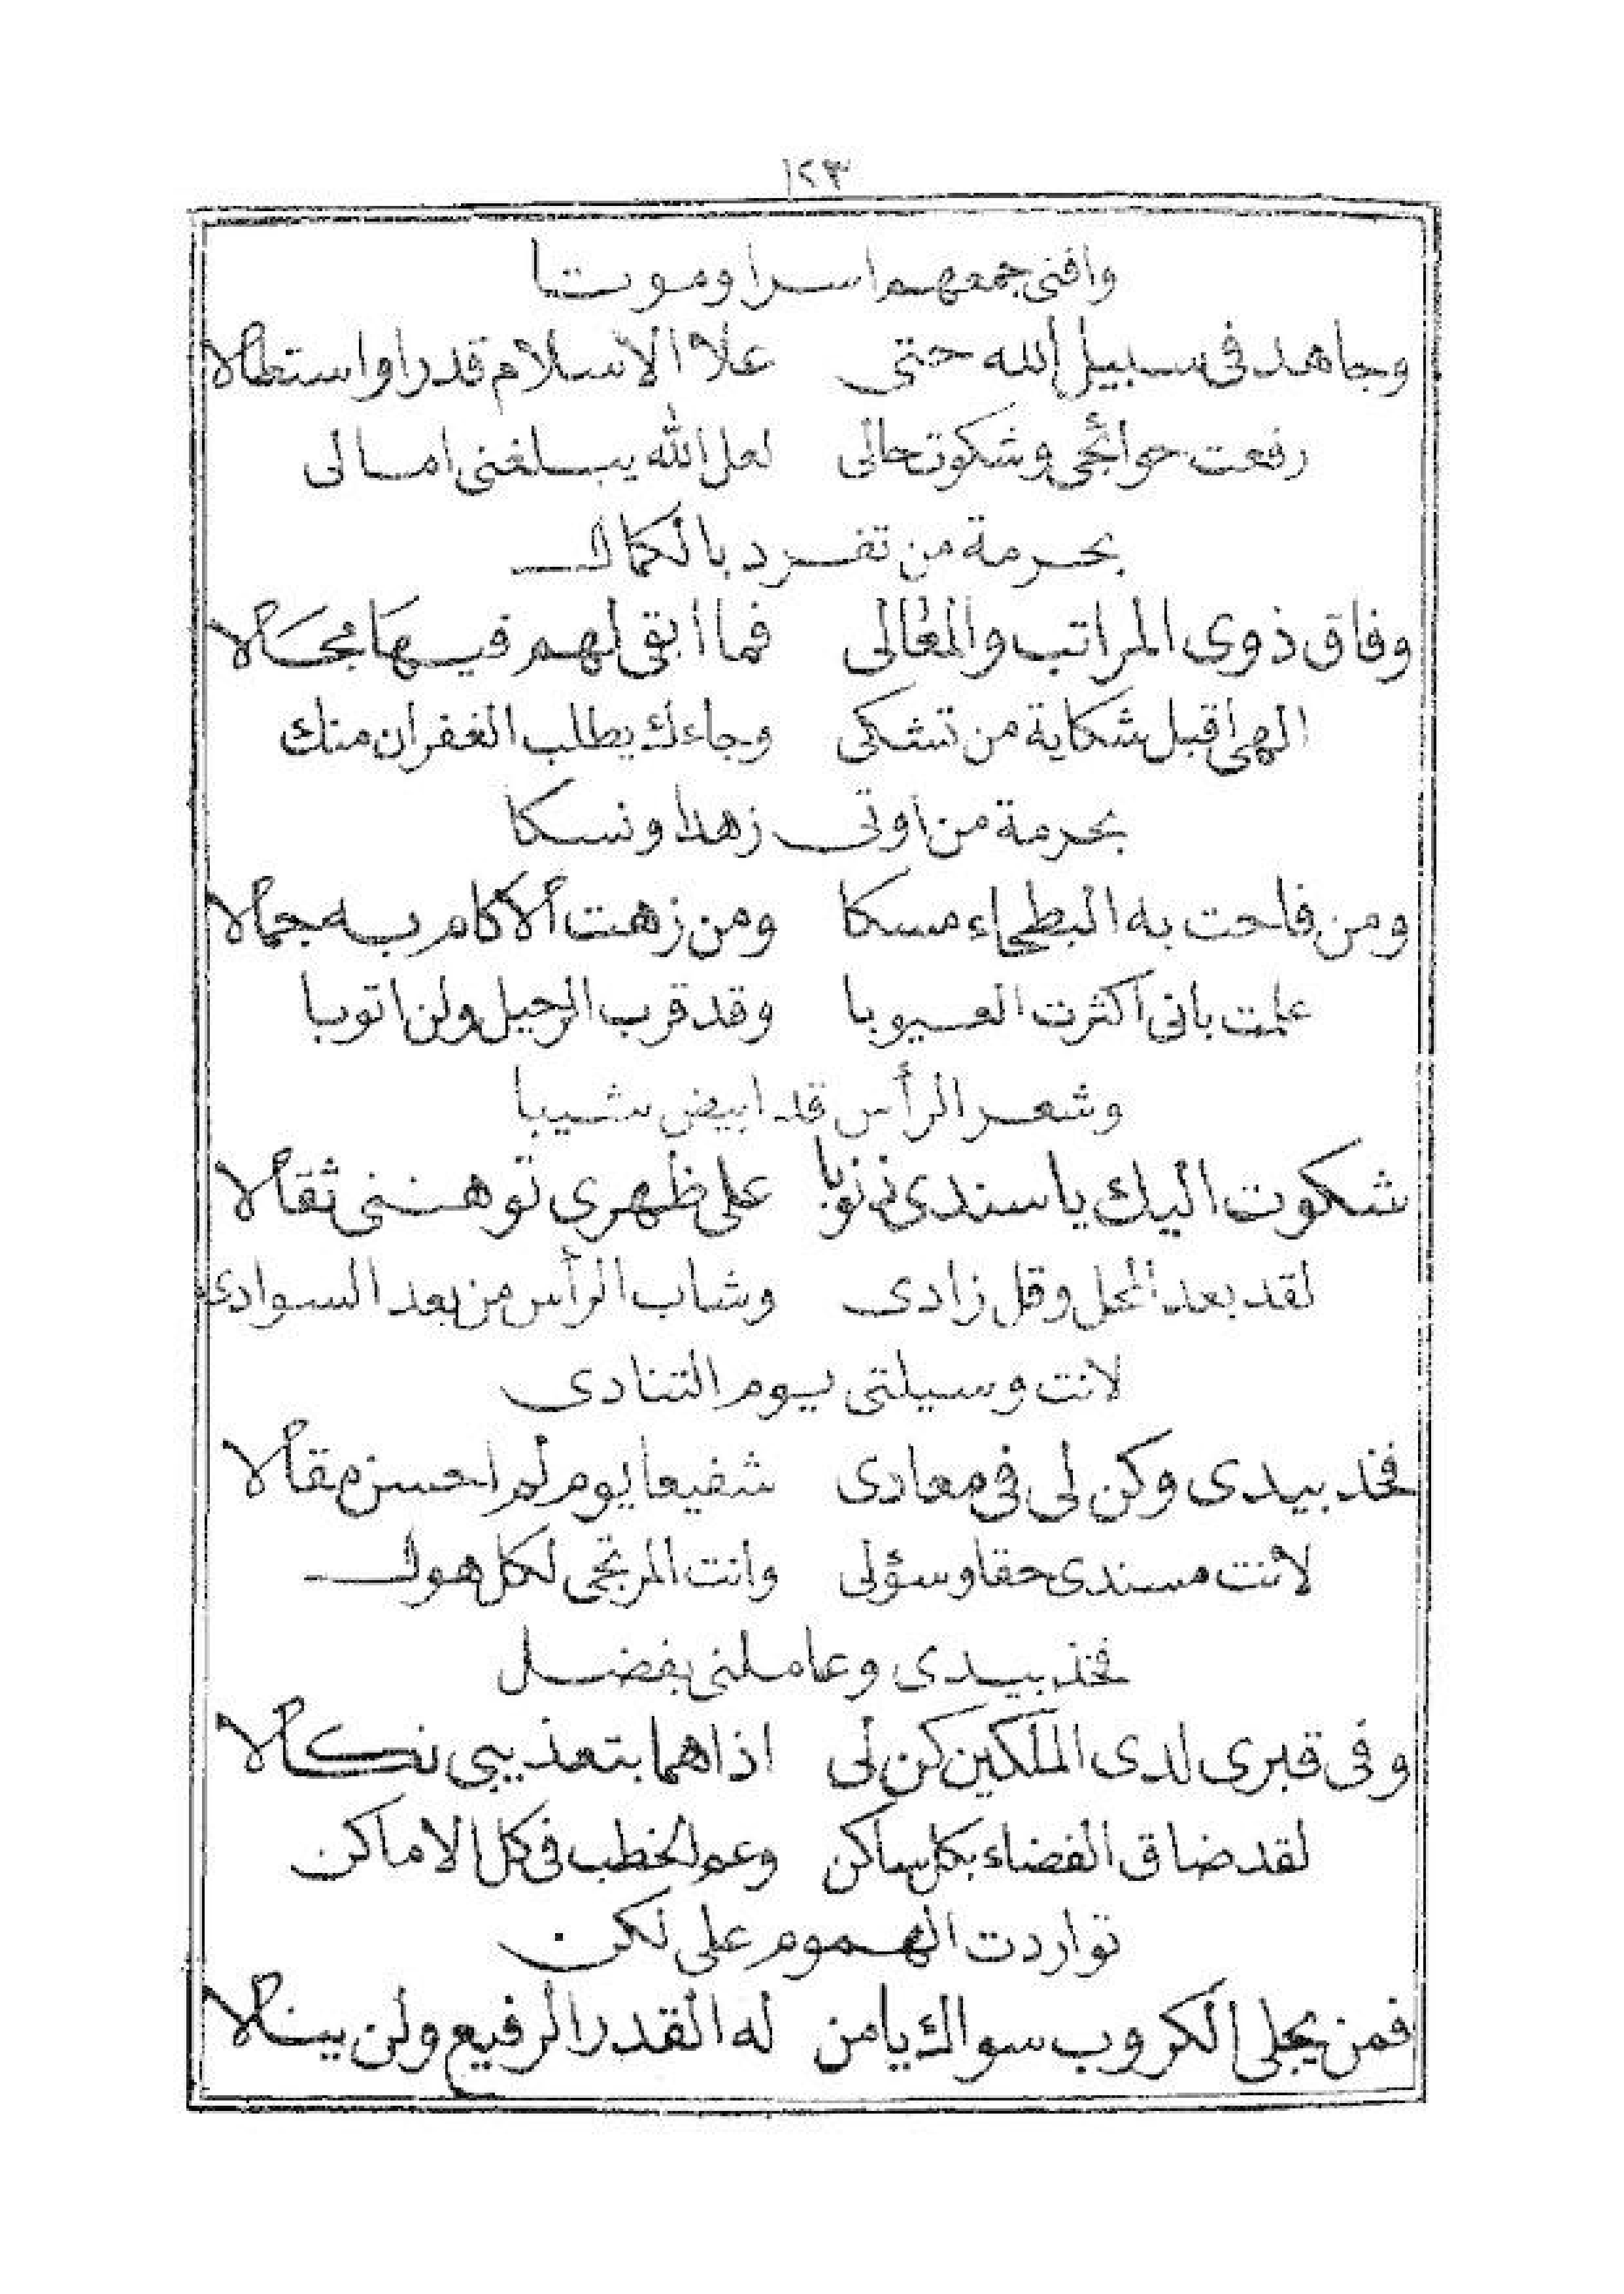 ١٢٣
وافنى جمعهم اسرا وموتا
وجاهد فى سبيل الله حتى علا الاسلام قدرا واستطالا
رفعت حوائجى وشكوت حالى لعل الله يبلغنى امالى
بحرمة من تفرد بالكمال
وفاق ذوى المراتب والمعالى فما ابقى لهم فيها مجالا
الهى اقبل شكاية من تشكى وجاءك يطلب الغفران منك
بحرمة من اوتى زهدا ونسكا
ومن فاحت به البطحاء مسكا ومن زهت الاكام به جمالا
علمت بانى اكثرت العيوبا وقد قرب الرحيل ولن اتوبا
وشعر الرأس قد ابيض شيبا
شكوت اليك يا سندى ذنوبا على ظهرى توهننى ثقالا
لقد بعد المحل وقل زادى وشاب الرأس من بعد السوادى
لانت وسيلتى يوم التنادى
فخذ بيدى وكن لى فى معادى شفيعا يوم لم احسن مقالا
لانت مسندى حقا وسؤلى وانت المرتجى لكل هول
فخذ بيدى وعاملنى بفضل
وفى قبرى لدى الملكين كن لى اذا هما بتعذيبى نكالا
لقد ضاق الفضاء بكل ساكن وعم الخطب فى كل الاماكن
تواردت الهموم على لكن
فمن يجلى الكروب سواك يا من له القدر الرفيع ولن ينالا